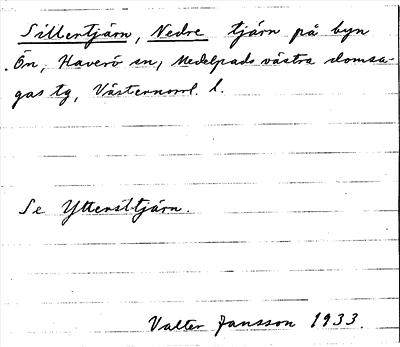 Sillertjärn, Nedre tjärn på byn
Ön, Haverö sn, Medelpads västra domsa-
gas tg, Västernorrl. l.
Se Ytterst-tjärn.
Valter Jansson 1933.